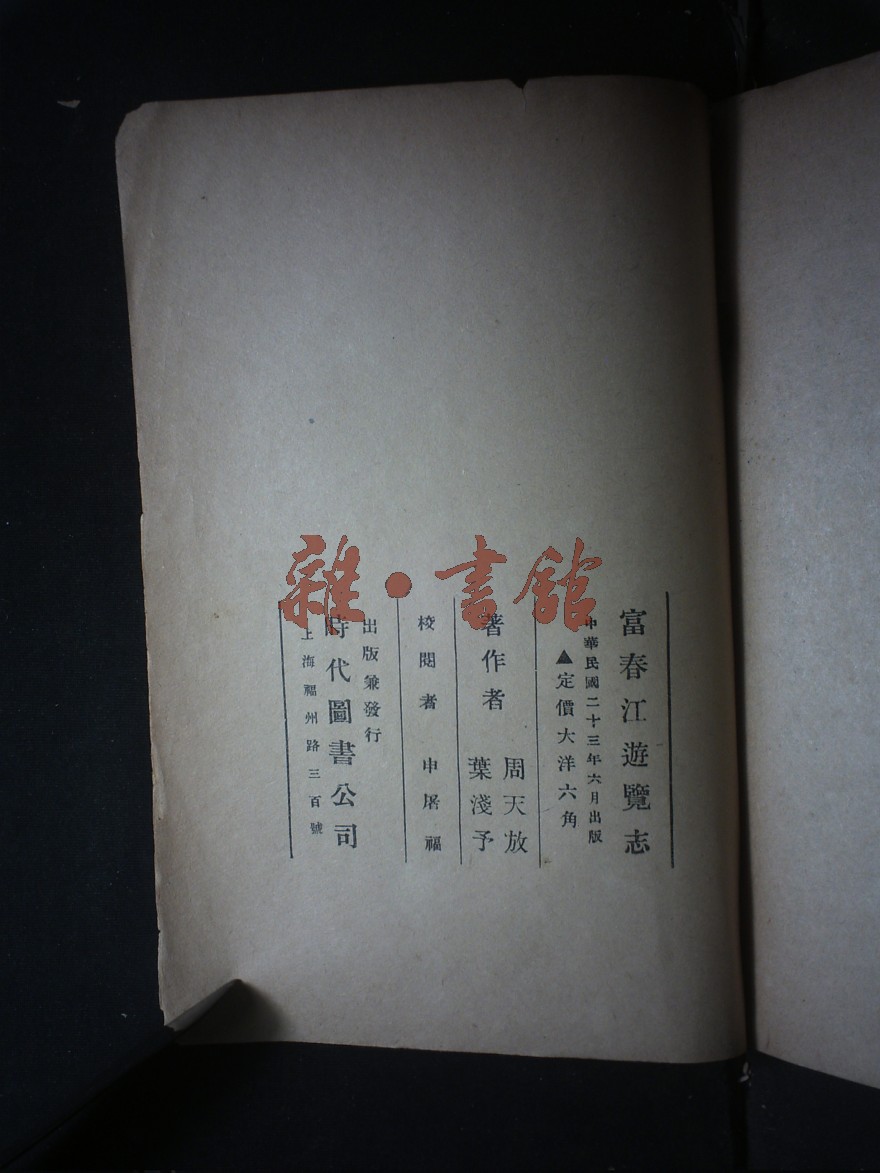 雜·書館
富春江遊覽志
中華民國二十三年六月出版
▲定價大洋六角
著作者
周天放
葉淺予
校閱者 申屠福
出版兼發行
時代圖書公司
上海福州路三百號